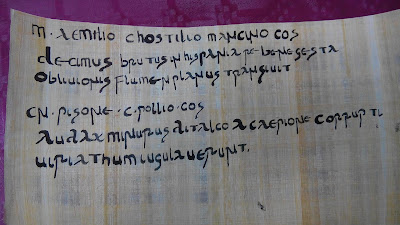 M. AEMILIO CHOSTILIO MANCINO COS
decimus brutus in hispania re bene gesta
obliuionis flumen planus transiuit
CN. PISONE. C. POLLIO. COS
audax minurus ditalco a caepione corrupti
uiriathum iugulauerunt.